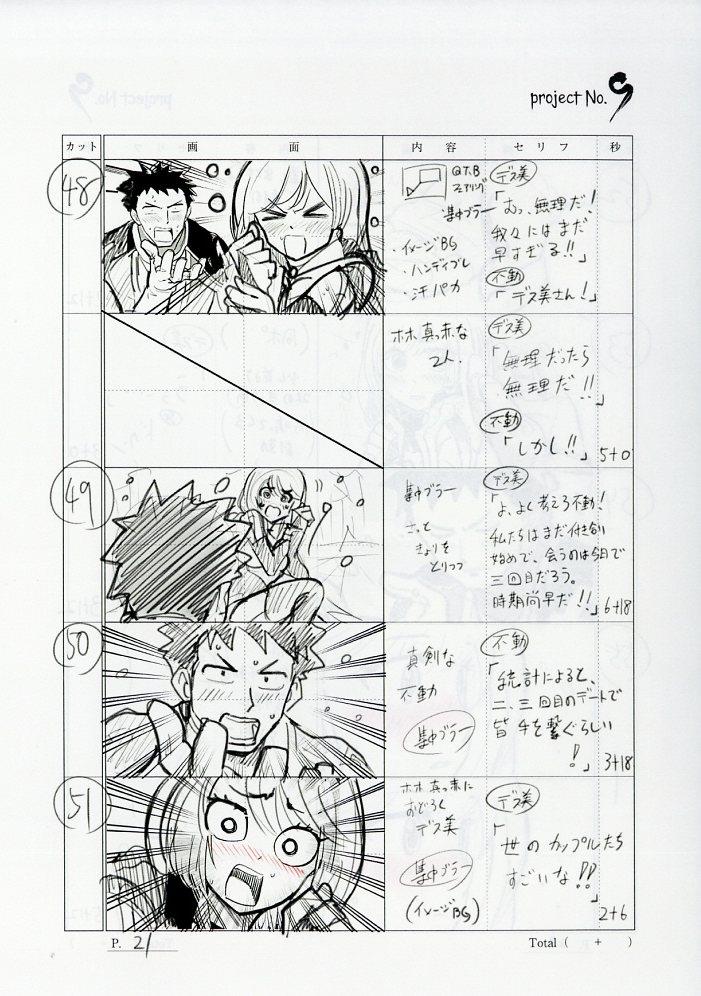 project No. 9
カット 画 面 内 容 セ リ フ 秒
48
Q T.B
集中ブラー
・イメージBG
・ハンディブレ
・汗パカ
デス美
「むっ、無理だ!
我々にはまだ
早すぎる!!」
不動
「デス美さん!」
ホホ真っ赤な
2人.
デス美
「無理だったら
無理だ!!」
不動
「しかし!!」
5+0
49
集中ブラー
さっと
きょりを
とりつつ
デス美
「よ、よく考えろ不動!
私たちはまだ付き合い
始めで、会うのは今日で
三回目だろう。
時期尚早だ!!」
6+18
50
真剣な
不動
集中ブラー
不動
「統計によると、
二、三回目のデートで
皆手を繋ぐらしい
!」
3+18
51
ホホ真っ赤に
おどろく
デス美
集中ブラー
(イメージBG)
デス美
「世のカップルたち
すごいな!!
」
2+6
P. 21
Total ( + )